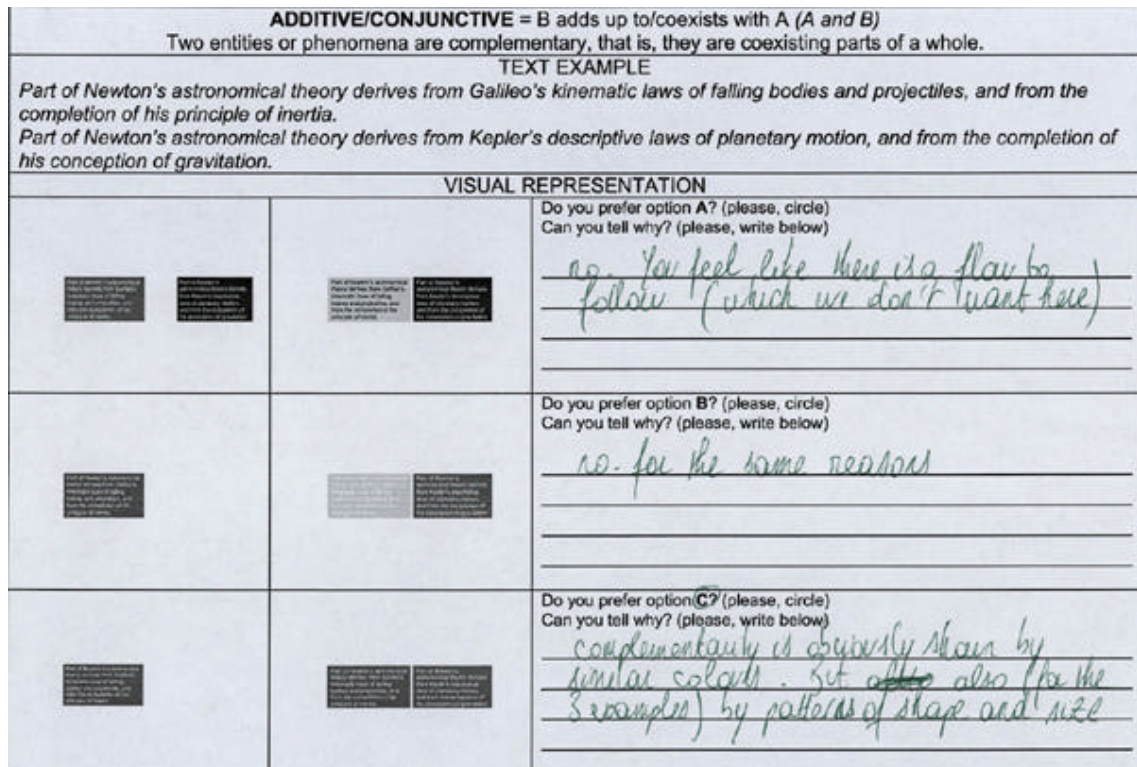 ADDITIVE/CONJUNCTIVE = B adds up to/coexists with A (A and B)
Two entities or phenomena are complementary, that is, they are coexisting parts of a whole.
TEXT EXAMPLE
Part of Newton's astronomical theory derives from Galileo's kinematic laws of falling bodies and projectiles, and from the
completion of his principle of inertia.
Part of Newton's astronomical theory derives from Kepler's descriptive laws of planetary motion, and from the completion of
his conception of gravitation.
VISUAL REPRESENTATION
Do you prefer option A? (please, circle)
Can you tell why? (please, write below)
no. You feel like there is a flow to
follow (which we don't want here)
Do you prefer option B? (please, circle)
Can you tell why? (please, write below)
no. for the same reasons
Do you prefer option C? (please, circle)
Can you tell why? (please, write below)
complementarity is obviously shown by
similar colours. But also (for the
3 examples) by patterns of shape and size